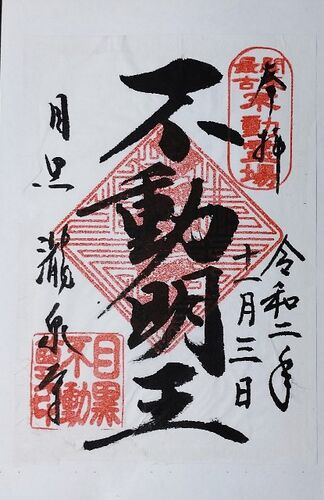 奉拝
関東最古不動霊場
令和二年
十一月三日
不動明王
目黒
瀧泉寺
目黒不動